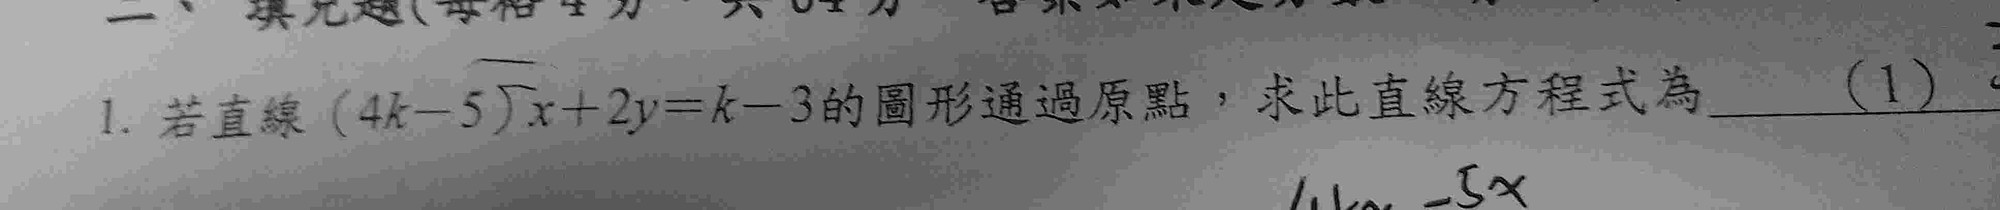 二、填充題(每格4分,共64分
1. 若直線 (4k-5)x+2y=k-3的圖形通過原點,求此直線方程式為 (1)
-5x